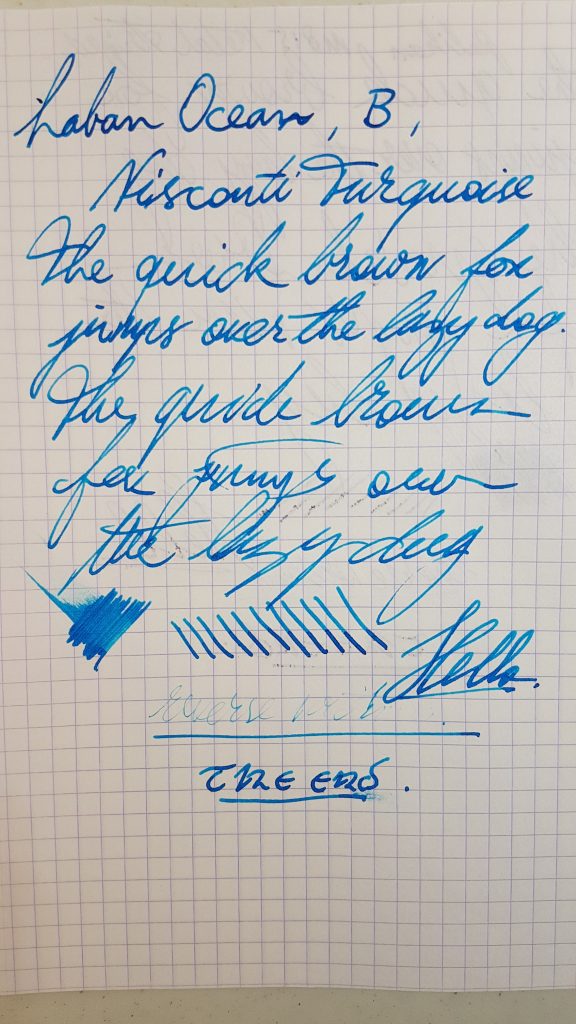 Laban Ocean, B,
Visconti Turquoise
The quick brown fox
jumps over the lazy dog.
The quick brown
fox jumps over
the lazy dog
Hello.
reverse writ
THE END.